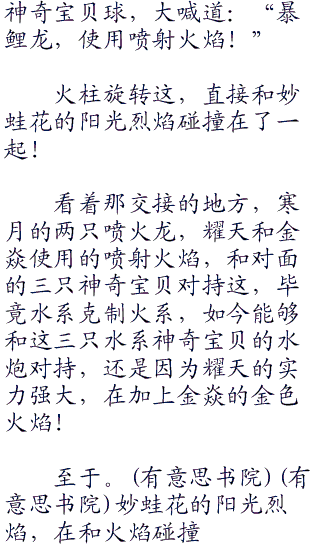 神奇宝贝球，大喊道：“暴
鲤龙，使用喷射火焰！”
火柱旋转这，直接和妙
蛙花的阳光烈焰碰撞在了一
起！
看着那交接的地方，寒
月的两只喷火龙，耀天和金
焱使用的喷射火焰，和对面
的三只神奇宝贝对持这，毕
竟水系克制火系，如今能够
和这三只水系神奇宝贝的水
炮对持，还是因为耀天的实
力强大，在加上金焱的金色
火焰！
至于。(有意思书院)(有
意思书院)妙蛙花的阳光烈
焰，在和火焰碰撞